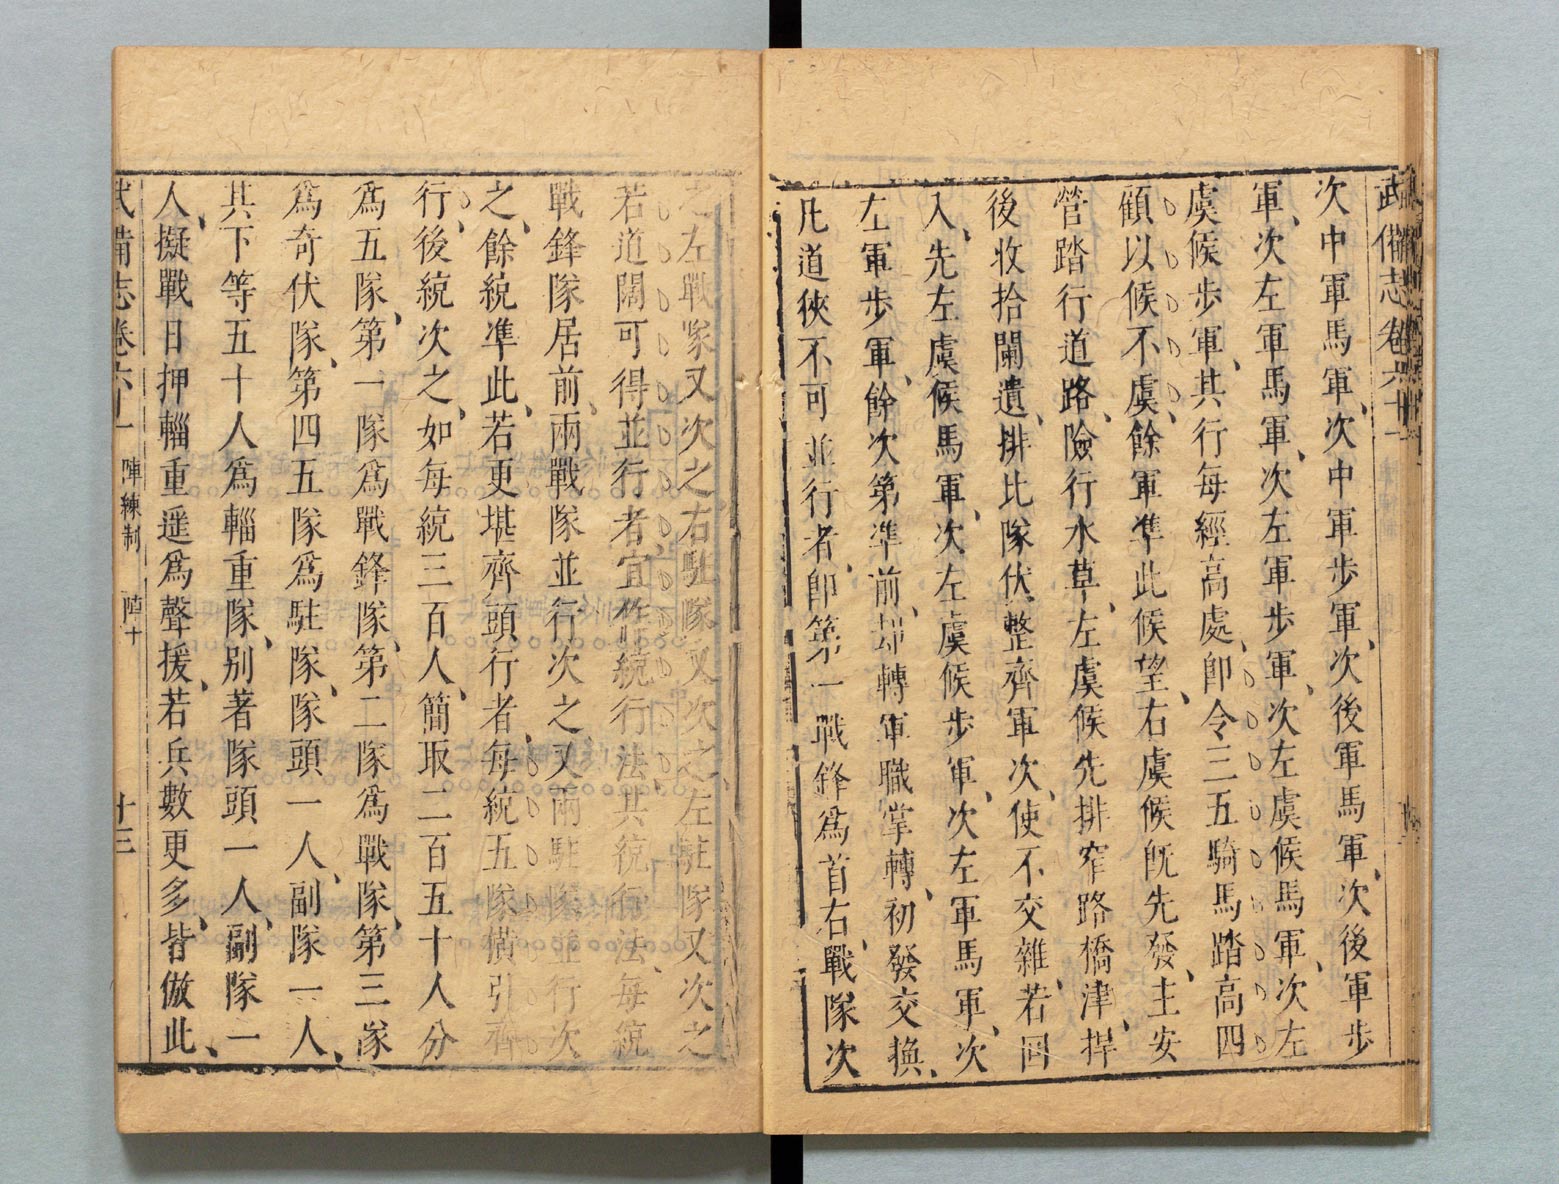 武備志卷六十一
次中軍馬軍、次中軍步軍、次後軍馬軍、次後軍步
軍、次左軍馬軍、次左軍步軍、次左虞候馬軍、次左
虞候步軍、其行每經高處、卽令三五騎馬踏高四
顧以候不虞、餘軍準此候望、右虞候旣先發、主安
營踏行道路、險行水草、左虞候先排窄路橋津、捍
後收拾闌遺、排比隊伏整齊軍次、使不交雜、若回
入、先左虞候馬軍、次左虞候步軍、次左軍馬軍、次
左軍步軍、餘次第準前、却轉軍職掌轉、初發交換、
凡道俠不可並行者、卽第一戰鋒爲首右、戰隊次
之左戰隊又次之右駐隊又次之、左駐隊又次之
若道闊可得並行者宜作統行法、其統行法、每統
戰鋒隊居前、兩戰隊並行次之、又兩駐隊並行次
之、餘統準此、若更堪齊頭行者、每統五隊橫引齊
行、後統次之、如每統三百人、簡取二百五十人分
爲五隊、第一隊爲戰鋒隊、第二隊爲戰隊、第三隊
爲奇伏隊、第四五隊爲駐隊、隊頭一人、副隊一人、
其下等五十人爲輜重隊、别著隊頭一人、副隊一
人、擬戰日押輜重遥爲聲援、若兵數更多、皆倣此、
武備志卷六十一 陣練制 陣十 十三